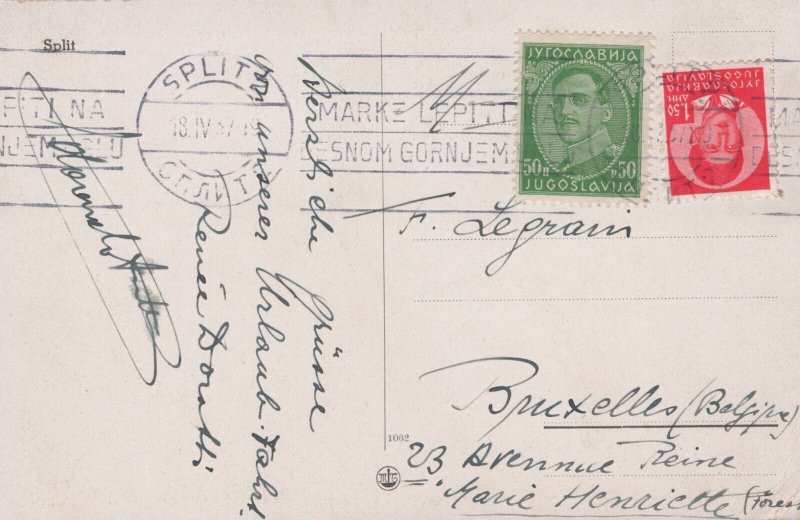 Split
SPLIT
18.IV.37
СПЛИТ
PITI NA
MARKE LEPITI
DESNOM GORNJEM
ЈУГОСЛАВИЈА
50 п
p 50
JUGOSLAVIJA
ЈУГОСЛАВИЈА
JUGOSLAVIJA
1.50
ДИН.
Herzliche Grüsse
von unserer Urlaub-Fahrt
Renée
F. Legrain
Bruxelles (Belgique)
23 Avennue Reine
Marie Henriette (Forest
1062